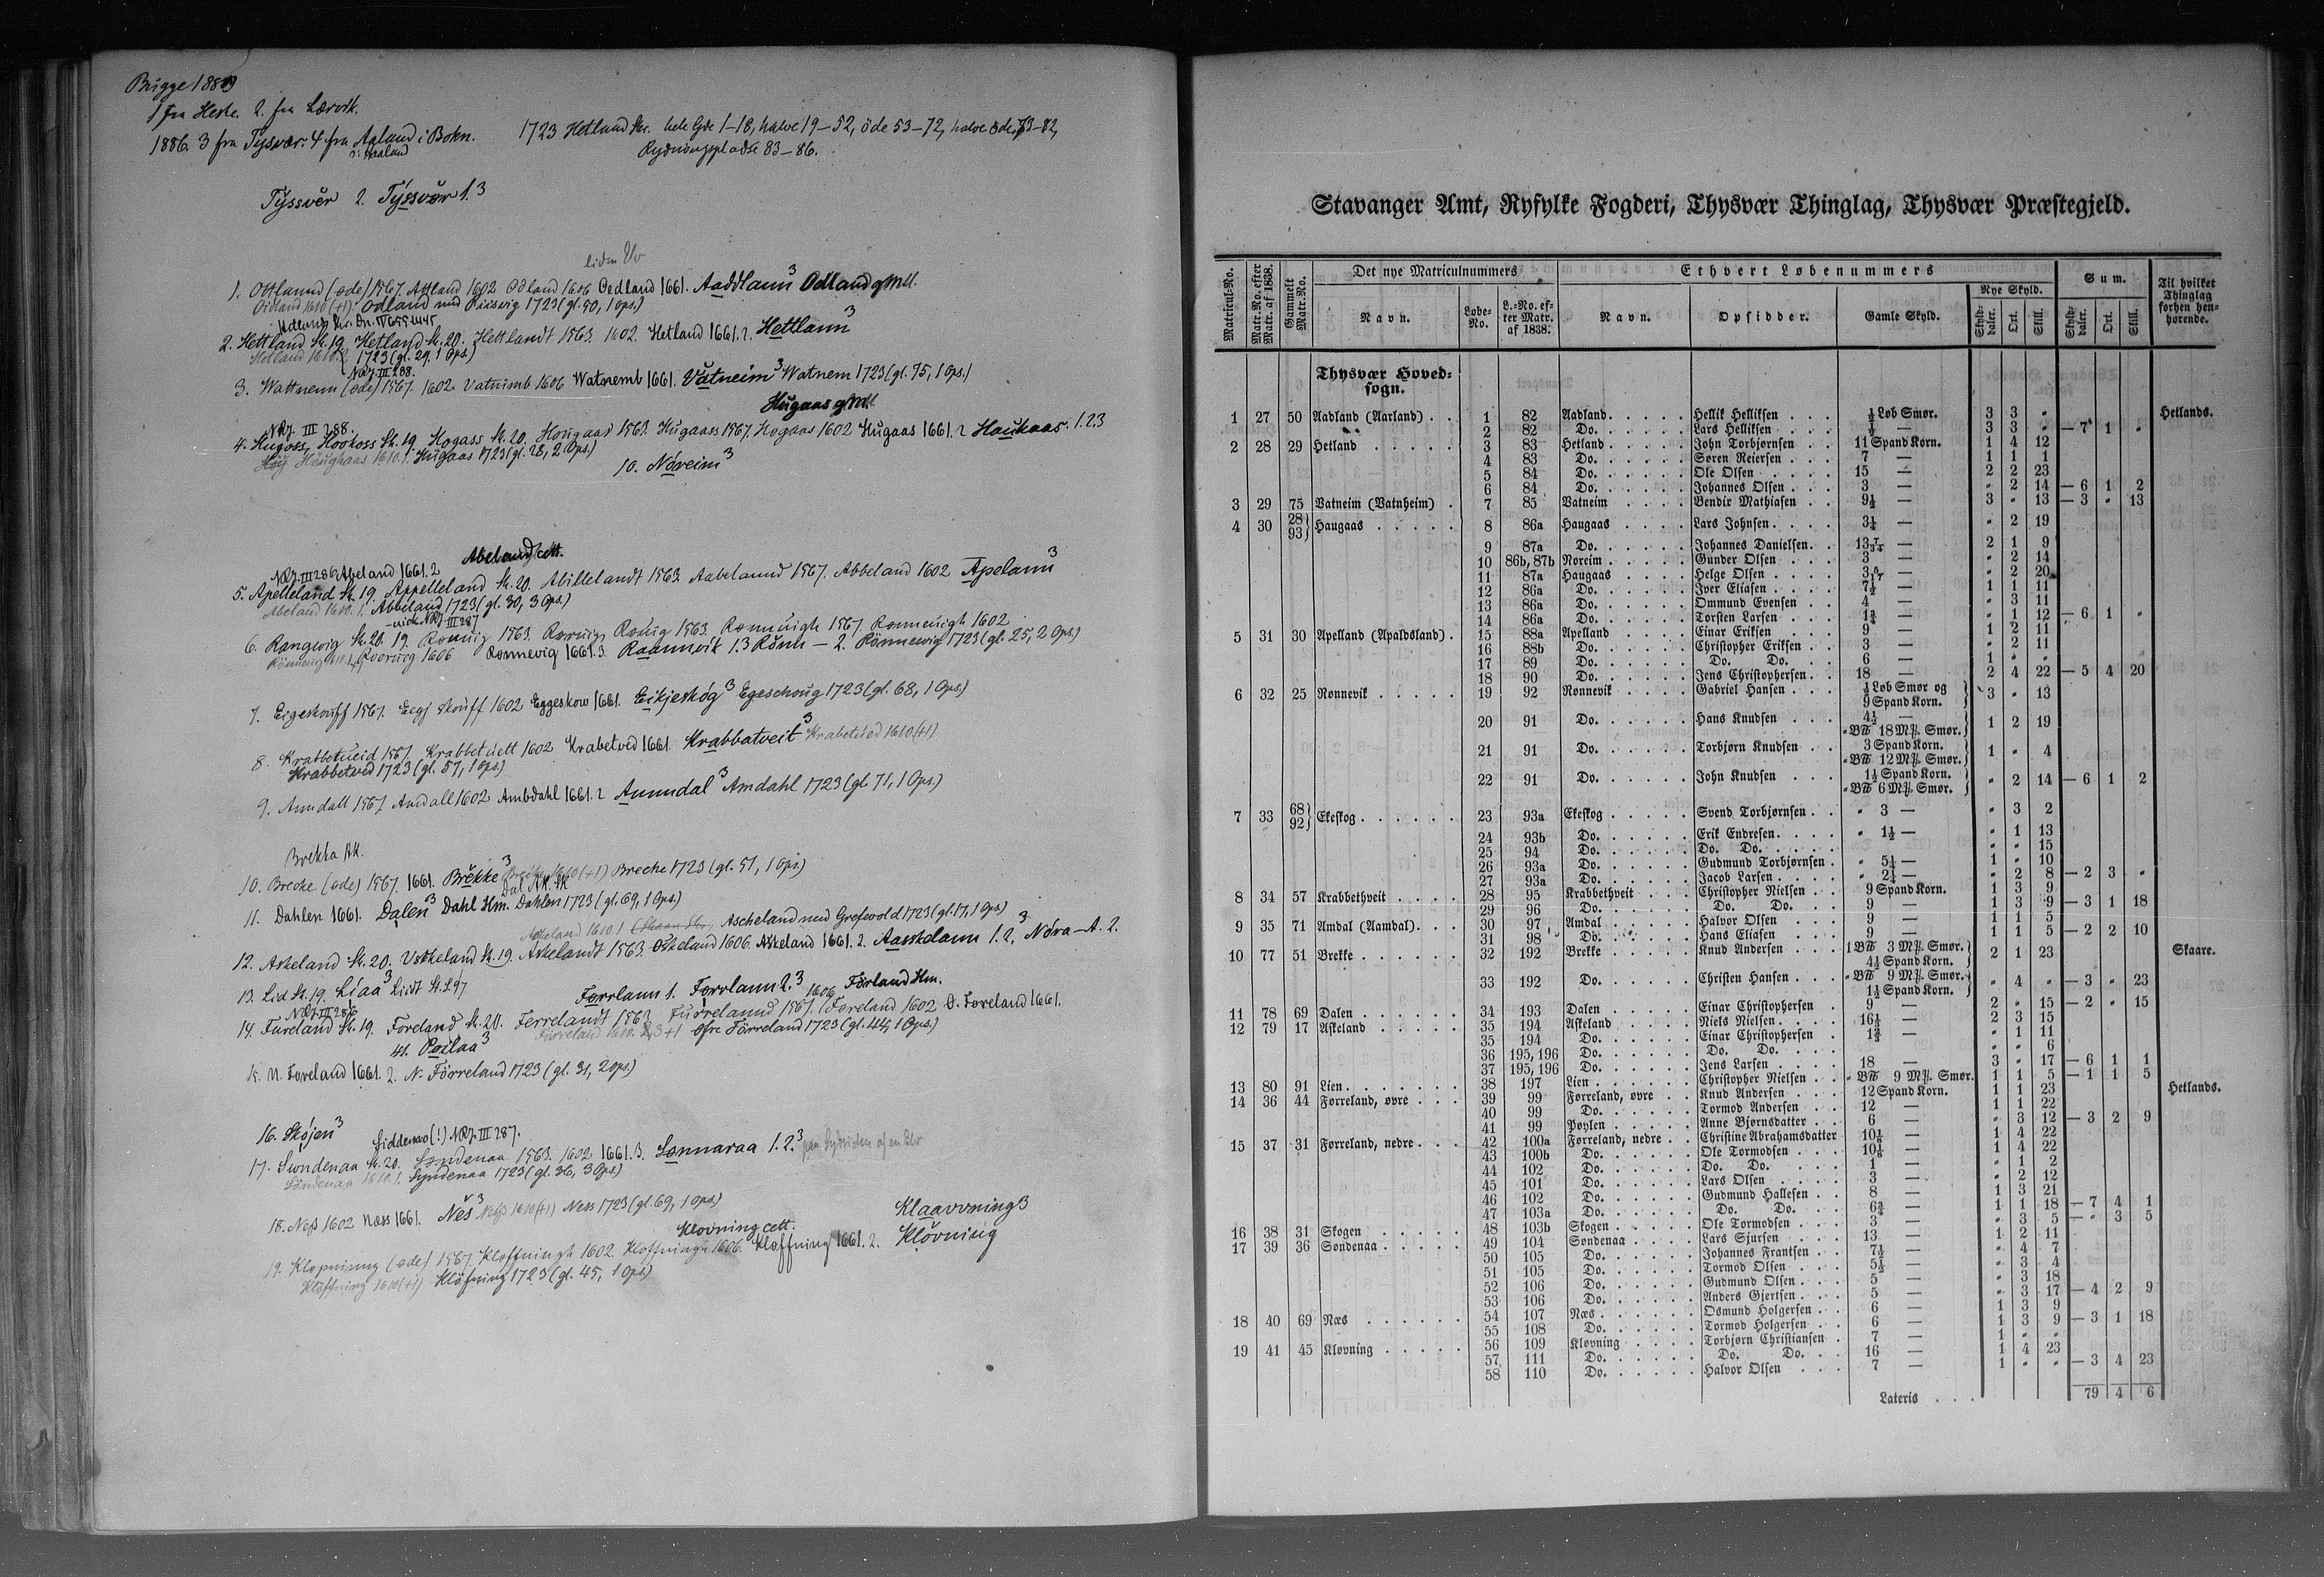 Brügge 1889
1 fra Heske. 2. fra Lærvik.
1886. 3 fra Tysvær. 4 fra Aaland i Bokn.
ɔ: Haaland
1723 Hetland Skr. hele Gde 1-18, halve 19-52, öde 53-72, halve öde 73-82,
Rydningspladse 83-86.
Tyssvër 2. Tyssvær 1.3
1. Ottlannd (øde) 1567. Attland 1602 Odland 1606 Oedland 1661. Aaddlann 3 Odland gMtl.
Odland med 1723 (gl. 50, 1 Ops.)
2. Hettland St. 19 Hetland St. 20. Hettlandt 1563. 1602. Hetland 1661. 2. Hettlann 3
Hetland 1610. 2 1723 (gl. 29. 1 Ops.)
NRJ. III 288.
3. Wattnemn (øde) 1567. 1602. Vatnimb 1606 Watnemb 1661. Våtneim 3 Watnem 1723 (gl. 75, 1 Ops.)
Hügaas gMtl.
NRJ. III 288.
4. Hugoss, Hookoss St. 19. Hogass St. 20. Hougaas 1563. Hugaass 1567. Hogaas 1602 Hugaas 1661. 2 Haukaas. 1.2.3
Houghaas 1610. 1. Hugaas 1723 (gl. 28, 2 Ops.)
10. Nóreim 3
Abeland cett.
NRJ. III 286 Abeland 1661. 2
5. Apelleland St. 19. Appelleland St. 20. Abillelandt 1563. Aabelannd 1567. Abbeland 1602 Apelann 3
Abeland 1610. 1. Abbeland 1723 (gl. 30, 3 Ops.)
-uick NRJ. III 287
6. Rangwig St. 20. 19. Ronuig 1563. Ronuig 1563. Ronnuigh 1567. Ronneuigh 1602
1606 Rønnevig 1661. 3. Raannvik 1.3 Rünn - 2. Rönnewig 1723 (gl. 25, 2 Ops.)
7. Eigeskouff 1567. Eegj skouff 1602 Eggeskow 1661. Eikjeskóg 3 Egeschoug 1723 (gl. 68, 1 Ops.)
8. Krabbetueid 1567. Krabbetuett 1602 Krabetved 1661. Krabbatveit 3 Krabetued 1610 (+1)
Krabbetved 1723 (gl. 57, 1 Ops.)
9. Amdall 1567 Amdall 1602 Ambdahl 1661. 2 Aamndal 3 Amdahl 1723 (gl. 71, 1 Ops.)
Brekka AK.
10. Brecke (øde) 1567. 1661. Brëkke 3 1610 (+1) Breche 1723 (gl. 51, 1 Ops.)
Dal AK. SK
11. Dahlen 1661. Dalen 3 Dahl Hm. Dahlen 1723 (gl. 69, 1 Ops.)
Askeland 1610. 1 Ascheland med Grefwold 1723 (gl. 17, 1 Ops)
12. Askeland St. 20. Vskeland St. 19. Askelandt 1563. Oskeland 1606. Askeland 1661. 2. Aasskelann 1.2. 3 Nóra-A. 2.
13. Lid St. 19. Líaa 3 Lidt St. 297
Førrlann 1. Førrlann 2. 3 1606 Förland Hm.
NRJ. III 286
14. Fureland St. 19. Foreland St. 20. Ferrelandt 1563. Furrelannd 1567. Foreland 1602 O. Foreland 1661.
Førreland 1610. 2.3 +1 Øfre Förreland 1723 (gl. 44, 1 Ops.)
41. Pøilaa 3
15. N. Foreland 1661. 2. N. Förreland 1723 (gl. 31, 2 Ops.)
16. Skójen 3
Siddenao (!) NRJ. III 287.
17. Swndenaa St. 20. Søndenaa 1563. 1602 1661. 3. Sønnaraa 1.2. 3 paa Sydsiden af en Elv
Søndenaa 1610. 1. Syndenaa 1723 (gl. 36, 3 Ops.)
18. Neß 1602 Næss 1661. Nës 3 Neß 1610 (+1) Ness 1723 (gl. 69, 1 Ops.)
Klovning cett. Klaavvning 3
19. Klopninng (øde) 1567. Kloffningh 1602. Kloffninge 1606. Kloffning 1661. 2. Klövning
Kloffning 1610 (+1) Klöfning 1723 (gl. 45, 1 Ops.)
Stavanger Amt, Ryfylke Fogderi, Thysvær Thinglag, Thysvær Præstegjeld.
Matricul-No. Matr.-No. efter Matr. af 1838. Gammelt Matr.-No. Det nye Matriculnummers Ethvert Løbenummers Sum. Til hvilket Thinglag forhen henhørende.
Navn. Løbe-No. L.-No. efter Matr. af 1838. Navn. Opsidder. Gamle Skyld. Nye Skyld. Skylddaler. Ort. Skill. Skylddaler. Ort. Skill.
Thysvær Hovedsogn.
1 27 50 Aadland (Aarland) . . 1 82 Aadland . . . . . Hellik Helliksen . . . ½ Løb Smør. 3 3 " Hetlands.
2 82 Do. . . . . . Lars Helliksen . . . ½ — 3 3 " — 7 1 "
2 28 29 Hetland . . . . . 3 83 Hetland . . . . . John Torbjørnsen . . 11 Spand Korn. 1 4 12
4 83 Do. . . . . . Søren Reiersen . . . 7 — 1 1 1
5 84 Do. . . . . . Ole Olsen . . . . 15 — 2 2 23
6 84 Do. . . . . . Johannes Olsen . . . 3 — " 2 14 — 6 1 2
3 29 75 Vatneim (Vatnheim) . 7 85 Vatneim . . . . Bendix Mathiasen . . 9½ — 3 " 13 — 3 " 13
4 30 28 93} Haugaas . . . . . 8 86a Haugaas . . . . Lars Johnsen . . . . 3¼ — " 2 19
9 87a Do. . . . . . Johannes Danielsen. . 13 7/34 — 2 1 9
10 86b, 87b Noreim . . . . . Gunder Olsen . . . 3 — " 2 14
11 87a Haugaas . . . . Helge Olsen . . . . 3 5/17 — " 2 20
12 86a Do. . . . . . Iver Eliasen . . . . 7½ — 1 1 11
13 86a Do. . . . . . Ommund Evensen . . 4 — " 3 11
14 86a Do. . . . . . Torsten Larsen . . . 1¾ — " 1 12 — 6 1 "
5 31 30 Apelland (Apaldsland) . 15 88a Apelland . . . . Einar Eriksen . . . 9 — 1 2 11
16 88b Do. . . . . . Christopher Eriksen . . 3 — " 2 11
17 89 Do. . . . . . Do. Do. . . 6 — 1 " "
18 90 Do. . . . . . Jens Christophersen . . 18 — 2 4 22 — 5 4 20
6 32 25 Rønnevik . . . . . 19 92 Rønnevik . . . . Gabriel Hansen . . . ½ Løb Smør og 9 Spand Korn. } 3 " 13
20 91 Do. . . . . . Hans Knudsen . . . 4½ — " B℔ 18 M℔. Smør. } 1 2 19
21 91 Do. . . . . . Torbjørn Knudsen . . 3 Spand Korn. " B℔ 12 M℔. Smør. } 1 " 4
22 91 Do. . . . . . John Knudsen . . . 1½ Spand Korn. " B℔ 6 M℔. Smør. } " 2 14 — 6 1 2
7 33 68 92} Ekeskog . . . . . . 23 93a Ekeskog . . . . . Svend Torbjørnsen . . " 3 — " 3 2
24 93b Do. . . . . . Erik Endresen . . . . " 1½ — " 1 13
25 94 Do. . . . . . Do. Do. . . . . . " " 15
26 93a Do. . . . . . Gudmund Torbjørnsen . " 5¼ — 1 " 10
27 93a Do. . . . . . Jacob Larsen . . . . " 2¼ — " 2 8 — 2 3 "
8 34 57 Krabbethveit . . . . 28 95 Krabbethveit . . . Christopher Nielsen . . 9 Spand Korn. 1 3 9
29 96 Do. . . . . . Do. Do. . . 9 — 1 3 9 — 3 1 18
9 35 71 Amdal (Aamdal). . . 30 97 Amdal . . . . . Halvor Olsen . . . 9 — 1 1 5
31 98 Do. . . . . . Hans Eliasen . . . 9 — 1 1 5 — 2 2 10
10 77 51 Brekke . . . . . . 32 192 Brekke . . . . . Knud Andersen . . . 1 B℔ 3 M℔. Smør. 4½ Spand Korn. } 2 1 23 Skaare.
33 192 Do. . . . . . Christen Hansen . . . " B℔ 9 M℔. Smør. 1½ Spand Korn. } " 4 " — 3 " 23
11 78 69 Dalen . . . . . . 34 193 Dalen . . . . . Einar Christophersen . 9 — 2 " 15 — 2 " 15
12 79 17 Askeland . . . . . 35 194 Askeland . . . . Niels Nielsen . . . . 16⅓ — 2 3 15
35 194 Do. . . . . . Einar Christophersen . 1⅔ — " 1 11
36 195, 196 Do. . . . . . Do. Do. . . . " " 6
37 195, 196 Do. . . . . . Jens Larsen . . . . 18 — 3 " 17 — 6 1 1
13 80 91 Lien. . . . . . . 38 197 Lien . . . . . . Christopher Nielsen . . " B℔ 9 M℔. Smør. 1 1 5 — 1 1 5
14 36 44 Førreland, øvre . . . 39 99 Førreland, øvre . . Knud Andersen . . . 12 Spand Korn. 1 1 23 Hetlands.
40 99 Do. . . . . . Tormod Andersen . . 12 — 1 1 22
41 99 Pøylen . . . . . Anne Bjørnsdatter . . 6 — " 3 12 — 3 2 9
15 37 31 Førreland, nedre . . . 42 100a Førreland, nedre . . Christine Abrahamsdatter 10⅛ — 1 4 22
43 100b Do. . . . . . Ole Tormodsen . . . 10⅛ — 1 4 22
44 102 Do. . . . . . Do. Do. . . . 1 — " 1 2
45 101 Do. . . . . . Lars Olsen . . . . 3 — " 2 12
46 102 Do. . . . . . Gudmund Hallesen . . 8 — 1 3 21
47 103a Do. . . . . . Do. Do. . . 6¾ — 1 1 18 — 7 4 1
16 38 31 Skogen . . . . . 48 103b Skogen . . . . . Ole Tormodsen . . . 3 — " 3 5 — " 3 5
17 39 36 Søndenaa . . . . . 49 104 Søndenaa . . . . Lars Sjursen . . . 13 — 1 2 11
50 105 Do. . . . . . Johannes Frantsen . . 7½ — " 4 7
51 105 Do. . . . . . Tormod Olsen . . . 5½ — " 3 4
52 106 Do. . . . . . Gudmund Olsen . . . 5 — " 3 18
53 106 Do. . . . . . Anders Gjertsen . . . 5 — " 3 17 — 4 2 9
18 40 69 Næs . . . . . . 54 107 Næs . . . . . . Osmund Holgersen . . 6 — 1 3 9
55 108 Do. . . . . . Tormod Holgersen . . 6 — 1 3 9 — 3 1 18
19 41 45 Kløvning . . . . . 56 109 Kløvning . . . . Torbjørn Christiansen . 7 — 1 " "
57 111 Do. . . . . . Do. Do. . . 16 — 1 4 23
58 110 Do. . . . . . Halvor Olsen . . . 7 — 1 " " — 3 4 23
Lateris . . . 79 4 6